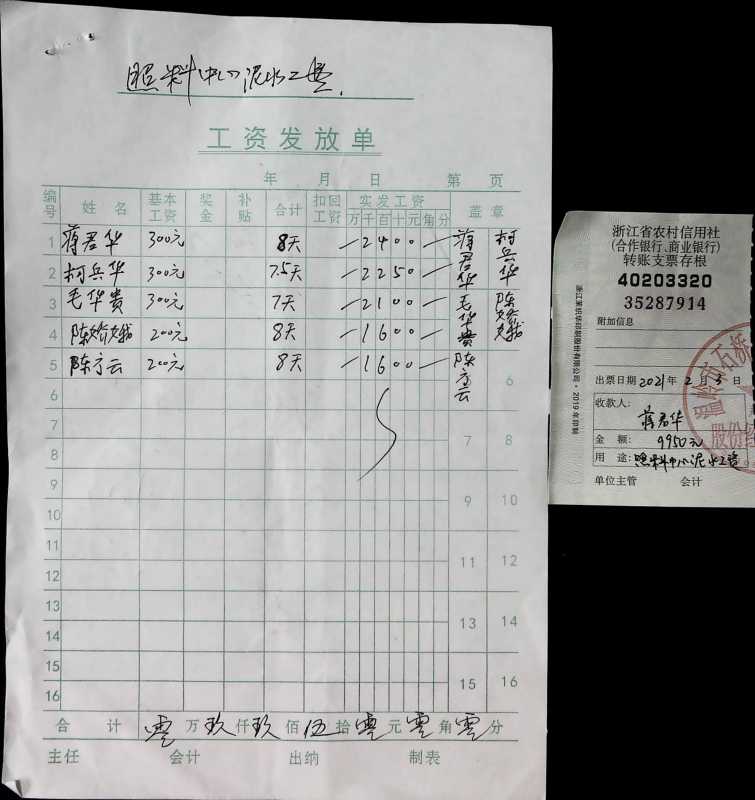 照料中心泥水工资
工资发放单
年 月 日 第 页
编号 姓名 基本工资 奖金 补贴 合计 扣回工资 实发工资 盖章
万 千 百 十 元 角 分
1 蒋君华 300元 8天 2400 蒋君华
2 柯兵华 300元 7.5天 2250 柯兵华
3 毛华贵 300元 7天 2100 毛华贵
4 陈娇娥 200元 8天 1600 陈娇娥
5 陈方云 200元 8天 1600 陈方云
6 6
7 7
8 8
9 9
10 10
11 11
12 12
13 13
14 14
15 15
16 16
合计 零万玖仟玖佰伍拾零元零角零分
主任 会计 出纳 制表
浙江省农村信用社
(合作银行、商业银行)
转账支票存根
40203320
35287914
附加信息
出票日期 2021年2月3日
收款人:
蒋君华
金额: 9950元
用途: 照料中心泥水工资
单位主管 会计
温岭市石桥
股份经